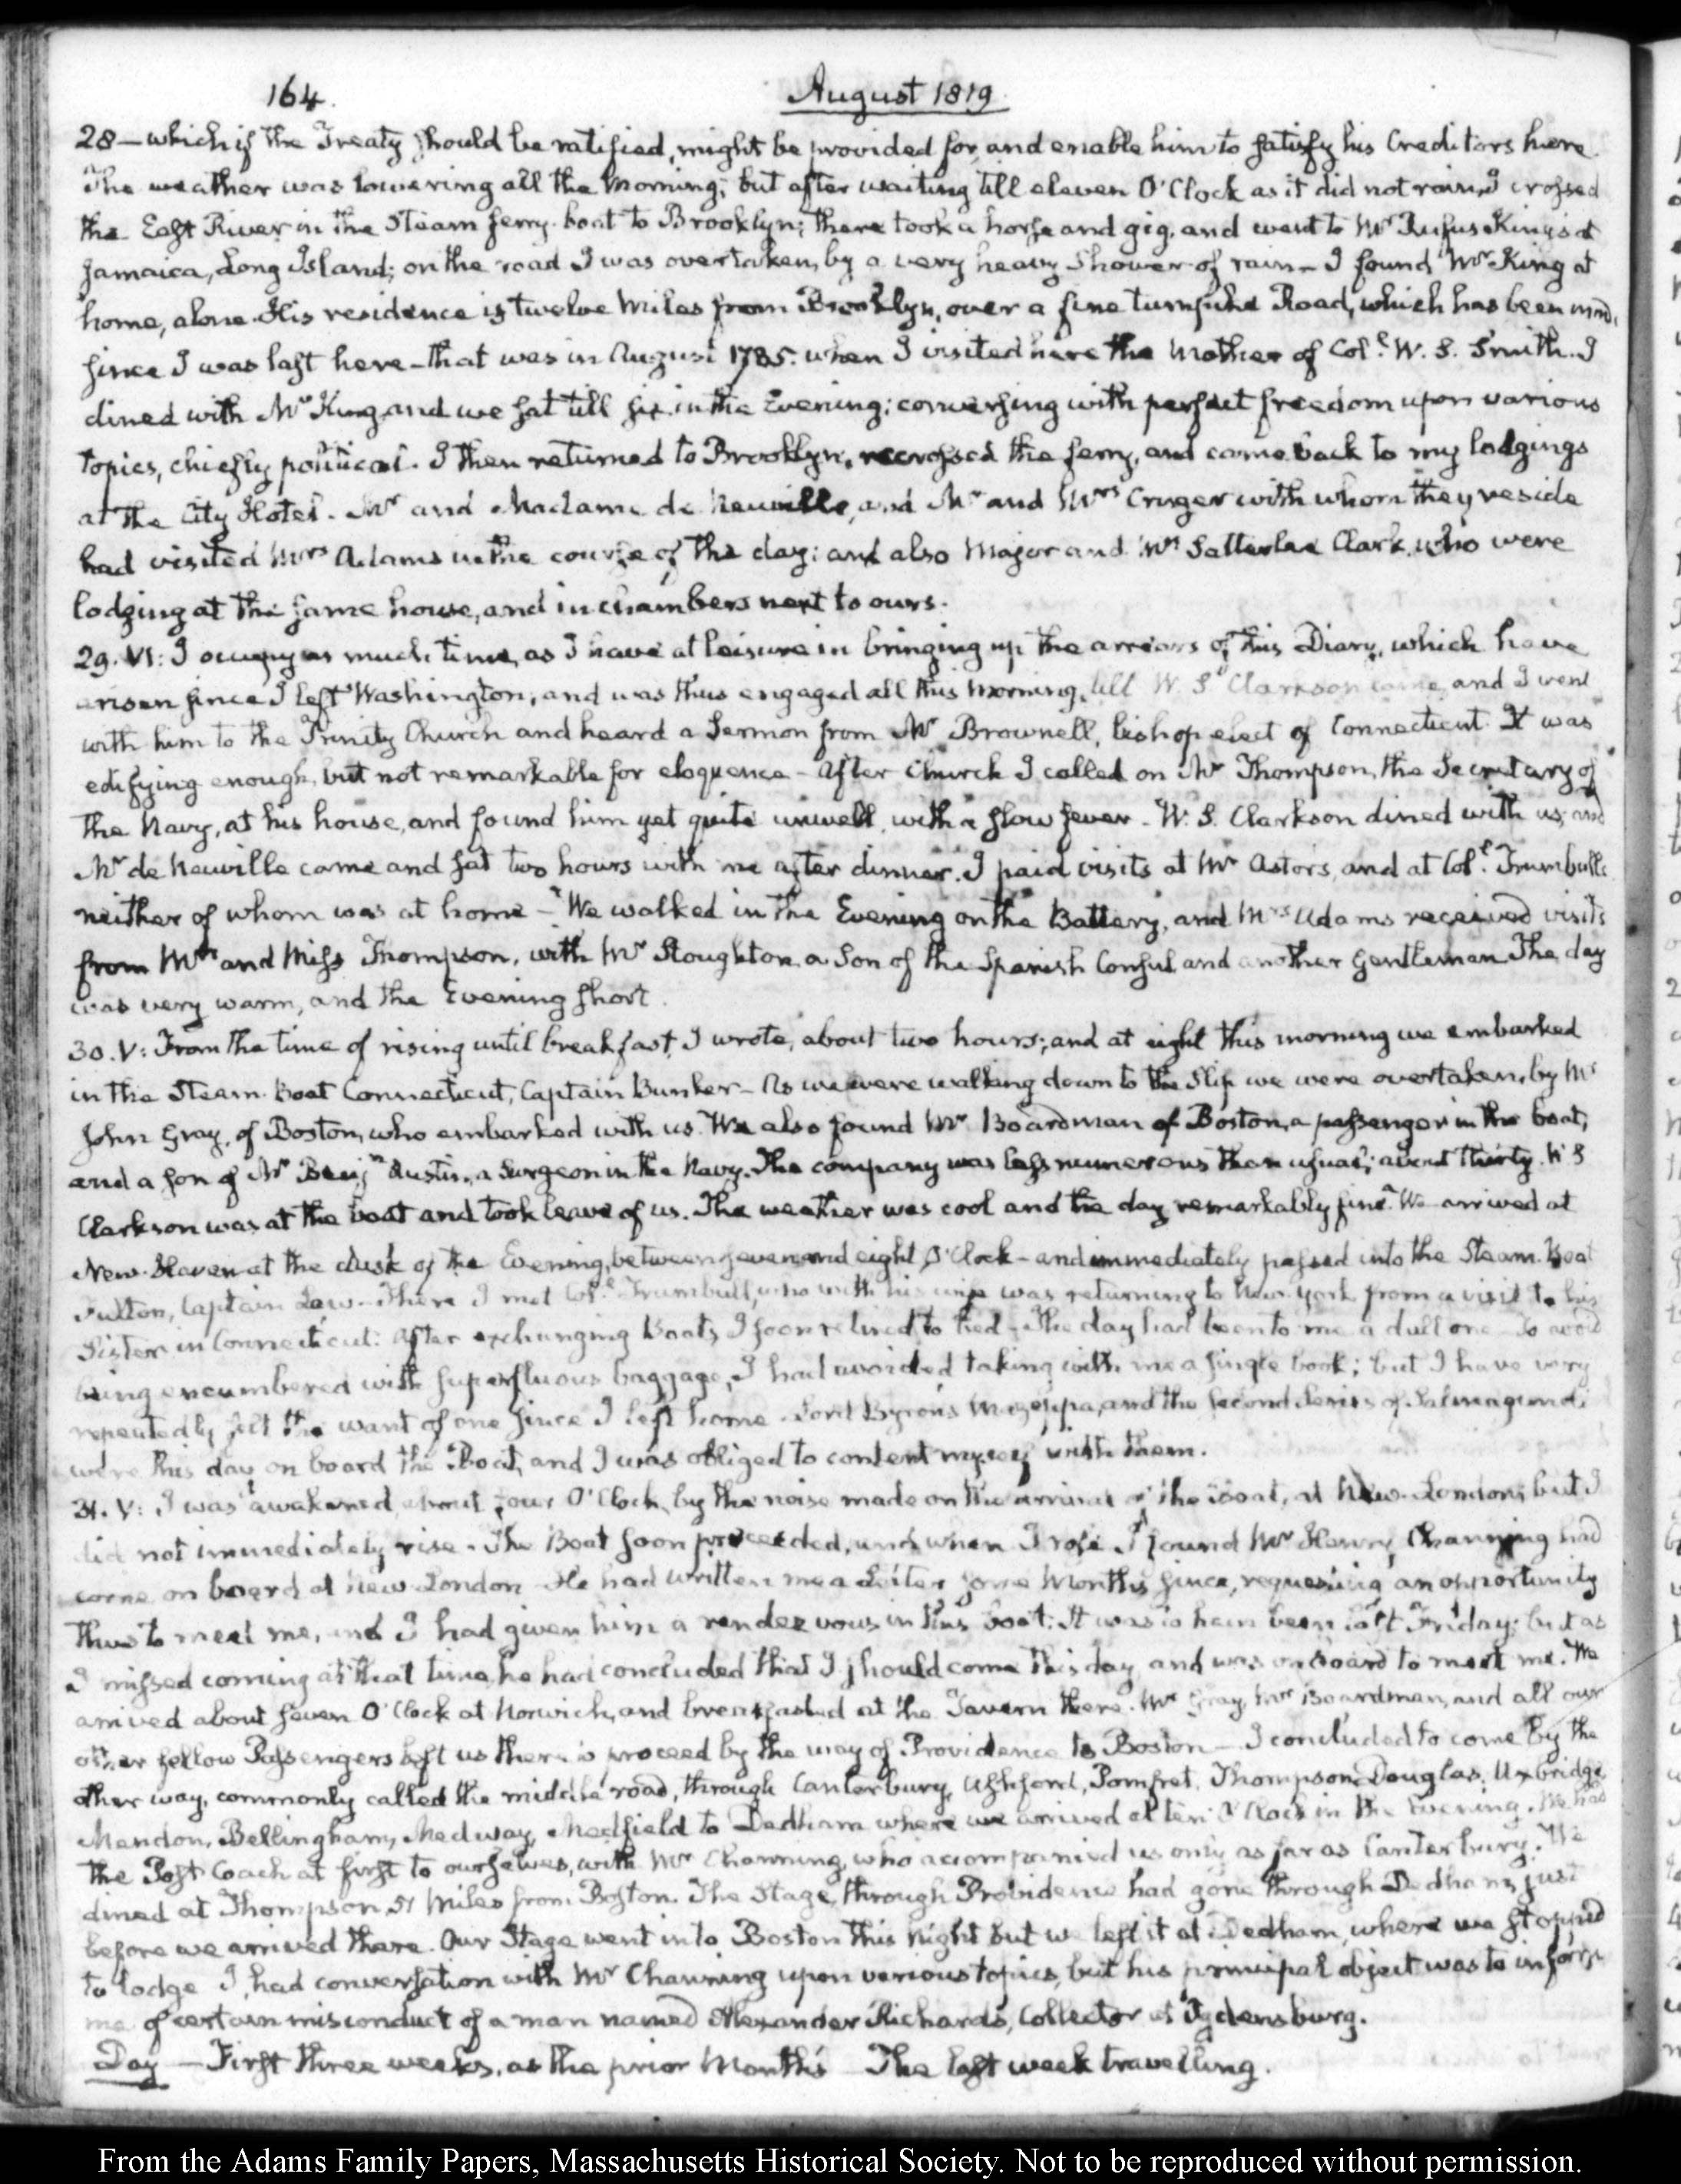 164.
August 1819.
28 — which if the Treaty should be ratified, might be provided for, and enable him to satisfy his Creditors here.
The weather was lowering all the morning; but after waiting till eleven O'Clock as it did not rain, I crossed
the East River in the Steam ferry-boat to Brooklyn; there took a horse and gig, and went to Mr Rufus King's at
Jamaica, Long Island; on the road I was overtaken, by a very heavy shower of rain — I found Mr King at
home, alone. His residence is twelve miles from Brooklyn, over a fine turnpike Road, which has been made,
since I was last here — that was in August 1785. when I visited here the Mother of Coll. W. S. Smith. I
dined with Mr King and we sat till six in the Evening; conversing with perfect freedom upon various
topics, chiefly political. I then returned to Brooklyn, recrossed the ferry, and came back to my lodgings
at the City Hotel. Mr and Madame de Neuville, and Mr and Mrs Cruger with whom they reside
had visited Mrs Adams in the course of the day; and also Major and Mrs Satterlee Clark, who were
lodging at the same house, and in chambers next to ours.
29. VI: I occupy as much time, as I have at leisure in bringing up the arrears of this Diary, which have
arisen since I left Washington, and was thus engaged all this morning, till W. S. Clarkson came, and I went
with him to the Trinity Church and heard a Sermon from Mr Brownell, bishop elect of Connecticut. It was
edifying enough, but not remarkable for eloquence — After Church I called on Mr Thompson, the Secretary of
the Navy, at his house, and found him yet quite unwell, with a slow fever — W. S. Clarkson dined with us, and
Mr de Neuville came and sat two hours with me after dinner. I paid visits at Mr Astor's, and at Coll. Trumbull's
neither of whom was at home — We walked in the Evening on the Battery, and Mrs Adams received visits
from Mrs and Miss Thompson, with Mr Stoughton a Son of the Spanish Consul and another Gentleman. The day
was very warm, and the Evening short.
30. V: From the time of rising until breakfast, I wrote, about two hours; and at eight this morning we embarked
in the Steam-Boat Connecticut, Captain Bunker — As we were walking down to the Slip we were overtaken, by Mr
John Gray, of Boston, who embarked with us. We also found Mr Boardman of Boston, a passenger in the boat,
and a son of Mr Benjn Austin, a Surgeon in the Navy. The company was less numerous than usual; about thirty. W S
Clarkson was at the boat and took leave of us. The weather was cool and the day remarkably fine. We arrived at
New-Haven at the dusk of the Evening, between seven and eight O'Clock — and immediately passed into the Steam-Boat
Fulton, Captain Law — There I met Coll. Trumbull, who with his wife was returning to New-York from a visit to his
Sister in Connecticut: After exchanging Boats, I soon retired to bed — The day had been to me a dull one. To avoid
being encumbered with superfluous baggage, I had avoided taking with me a single book; but I have very
repeatedly felt the want of one since I left home. Lord Byron's Mazeppa, and the second Series of Salmagundi
were this day on board the Boat, and I was obliged to content myself with them.
31. V: I was awakened, about four O'Clock, by the noise made on the arrival of the Boat, at New-London, but I
did not immediately rise. The Boat soon proceeded, and when I rose I found Mr Henry Channing had
come on board at New London. He had written me a Letter some Months since, requesting an opportunity
thus to meet me, and I had given him a rendezvous in this boat. It was to have been last Friday; but as
I missed coming at that time, he had concluded that I should come this day, and was on board to meet me. We
arrived about seven O'Clock at Norwich, and breakfasted at the Tavern there. Mr Gray, Mr Boardman, and all our
other fellow Passengers left us there to proceed by the way of Providence to Boston — I concluded to come by the
other way, commonly called the middle road, through Canterbury, Ashford, Pomfret, Thompson, Douglas, Uxbridge,
Mendon, Bellingham, Medway, Medfield to Dedham where we arrived at ten O'Clock in the Evening. We had
the Post-Coach at first to ourselves, with Mr Channing, who accompanied us only as far as Canterbury. We
dined at Thompson, 51 miles from Boston. The Stage through Providence had gone through Dedham, just
before we arrived there. Our Stage went into Boston this Night but we left it at Dedham, where we stopped
to lodge. I had conversation with Mr Channing upon various topics, but his principal object was to inform
me of certain misconduct of a man named Alexander Richards, Collector at Ogdensburg.
Day — First three weeks, as the prior Months — The last week travelling.
From the Adams Family Papers, Massachusetts Historical Society. Not to be reproduced without permission.